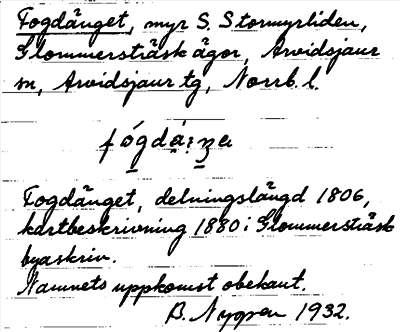 Fogdänget, myr S. Stormyrliden,
Glommersträsk ägor, Arvidsjaur
sn, Arvidsjaur tg, Norrb. l.
fógdä:ŋe
Fogdänget, delningslängd 1806,
kartbeskrivning 1880 i Glommersträsk
byaskrin.
Namnets uppkomst obekant.
B. Nygren 1932.